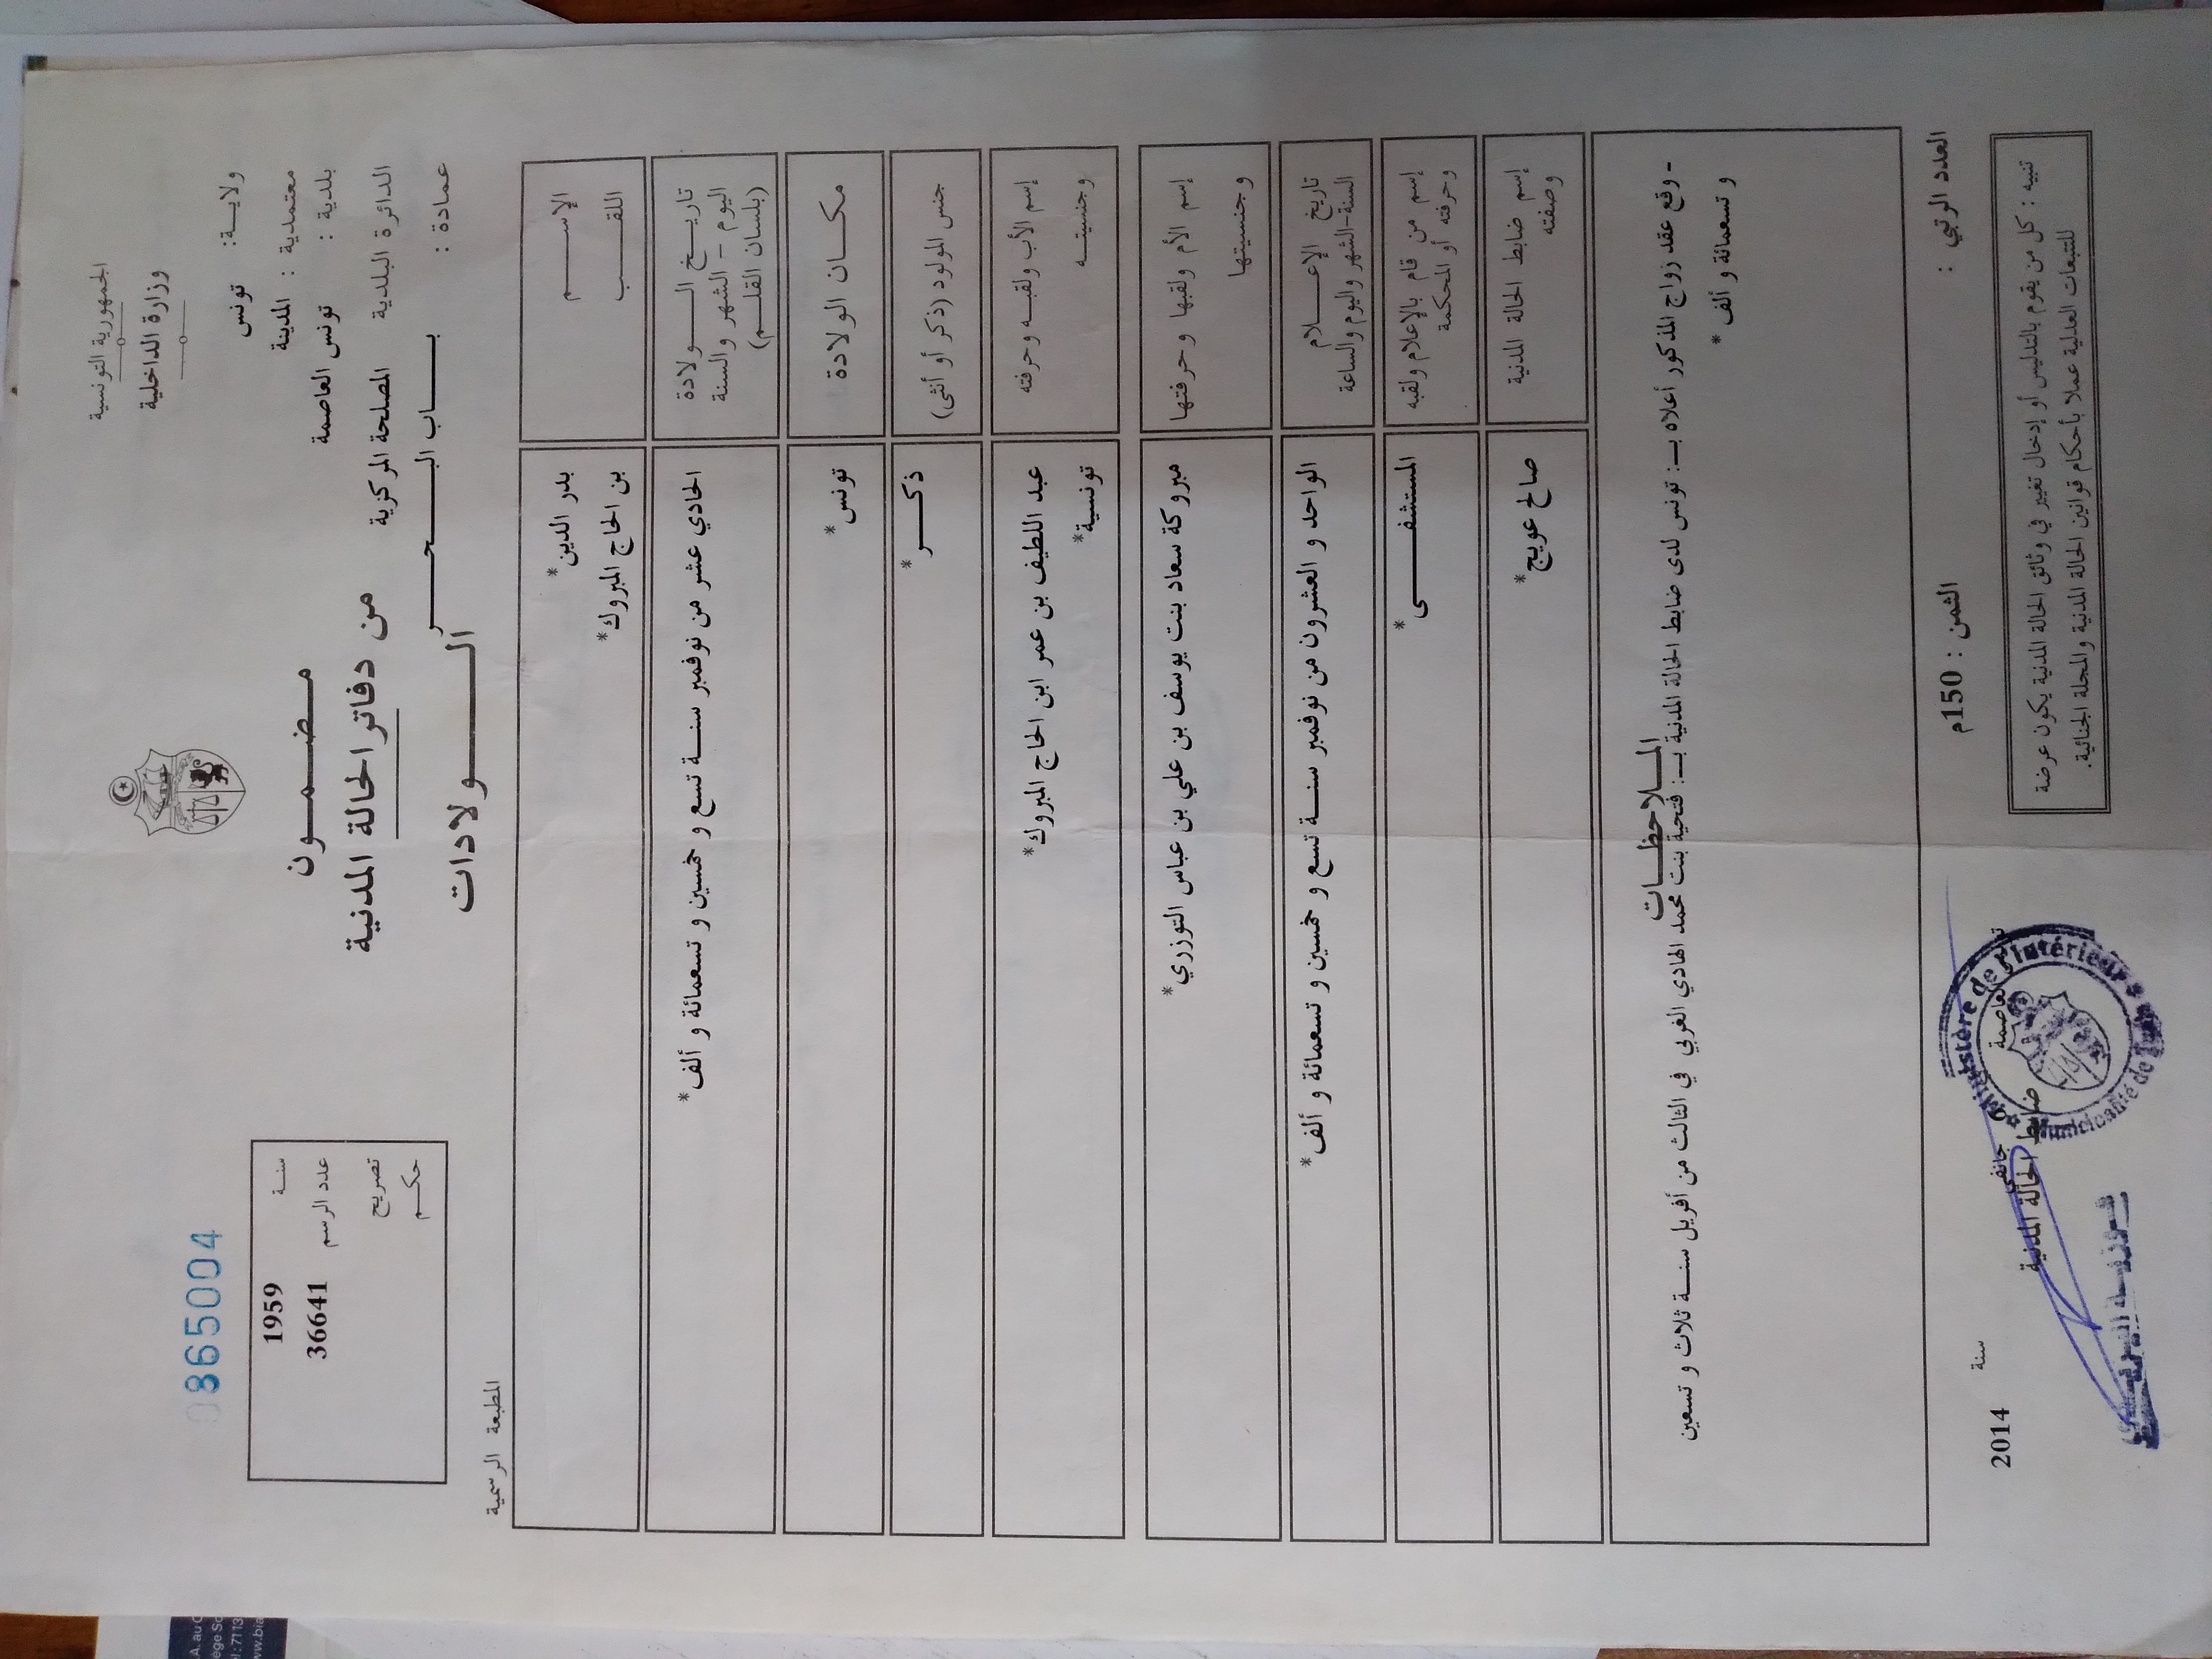 الجمهورية التونسية
وزارة الداخلية
ولاية: تونس
معتمدية : المدينة
بلدية : تونس العاصمة
الدائرة البلدية المصلحة المركزية
عمادة : باب البحر
مضمون
من دفاتر الحالة المدنية
الولادات
0865004
سنة 1959
عدد الرسم 36641
تصريح
حكم
المطبعة الرسمية
الإسم بدر الدين*
اللقب بن الحاج المبروك*
تاريخ الولادة الحادي عشر من نوفمبر سنة تسع و خمسين و تسعمائة و ألف*
اليوم - الشهر والسنة
(بلسان القلم)
مكان الولادة تونس*
جنس المولود (ذكر أو أنثى) ذكر*
إسم الأب ولقبه وحرفته عبد اللطيف بن عمر ابن الحاج المبروك*
وجنسيته تونسية*
إسم الأم ولقبها وحرفتها مبروكة سعاد بنت يوسف بن علي بن عباس التوزري*
وجنسيتها
تاريخ الإعلام الواحد و العشرون من نوفمبر سنة تسع و خمسين و تسعمائة و ألف*
السنة-الشهر واليوم والساعة
إسم من قام بالإعلام ولقبه المستشفى*
وحرفته أو المحكمة
إسم ضابط الحالة المدنية صالح عويج*
وصفته
الملاحظات
- وقع عقد زواج المذكور أعلاه بـ: تونس لدى ضابط الحالة المدنية بـ: فتحية بنت محمد الهادي الغربي في الثالث من أفريل سنة ثلاث و تسعين
و تسعمائة و ألف *
العدد الرتبي :
الثمن : 150م
العاصمة
جانفي
سنة 2014
ضابط الحالة المدنية
Ministère de l'Intérieur
Municipalité de Tunis
تنبيه : كل من يقوم بالتدليس أو إدخال تغيير في وثائق الحالة المدنية يكون عرضة
للتتبعات العدلية عملا بأحكام قوانين الحالة المدنية والمجلة الجنائية.